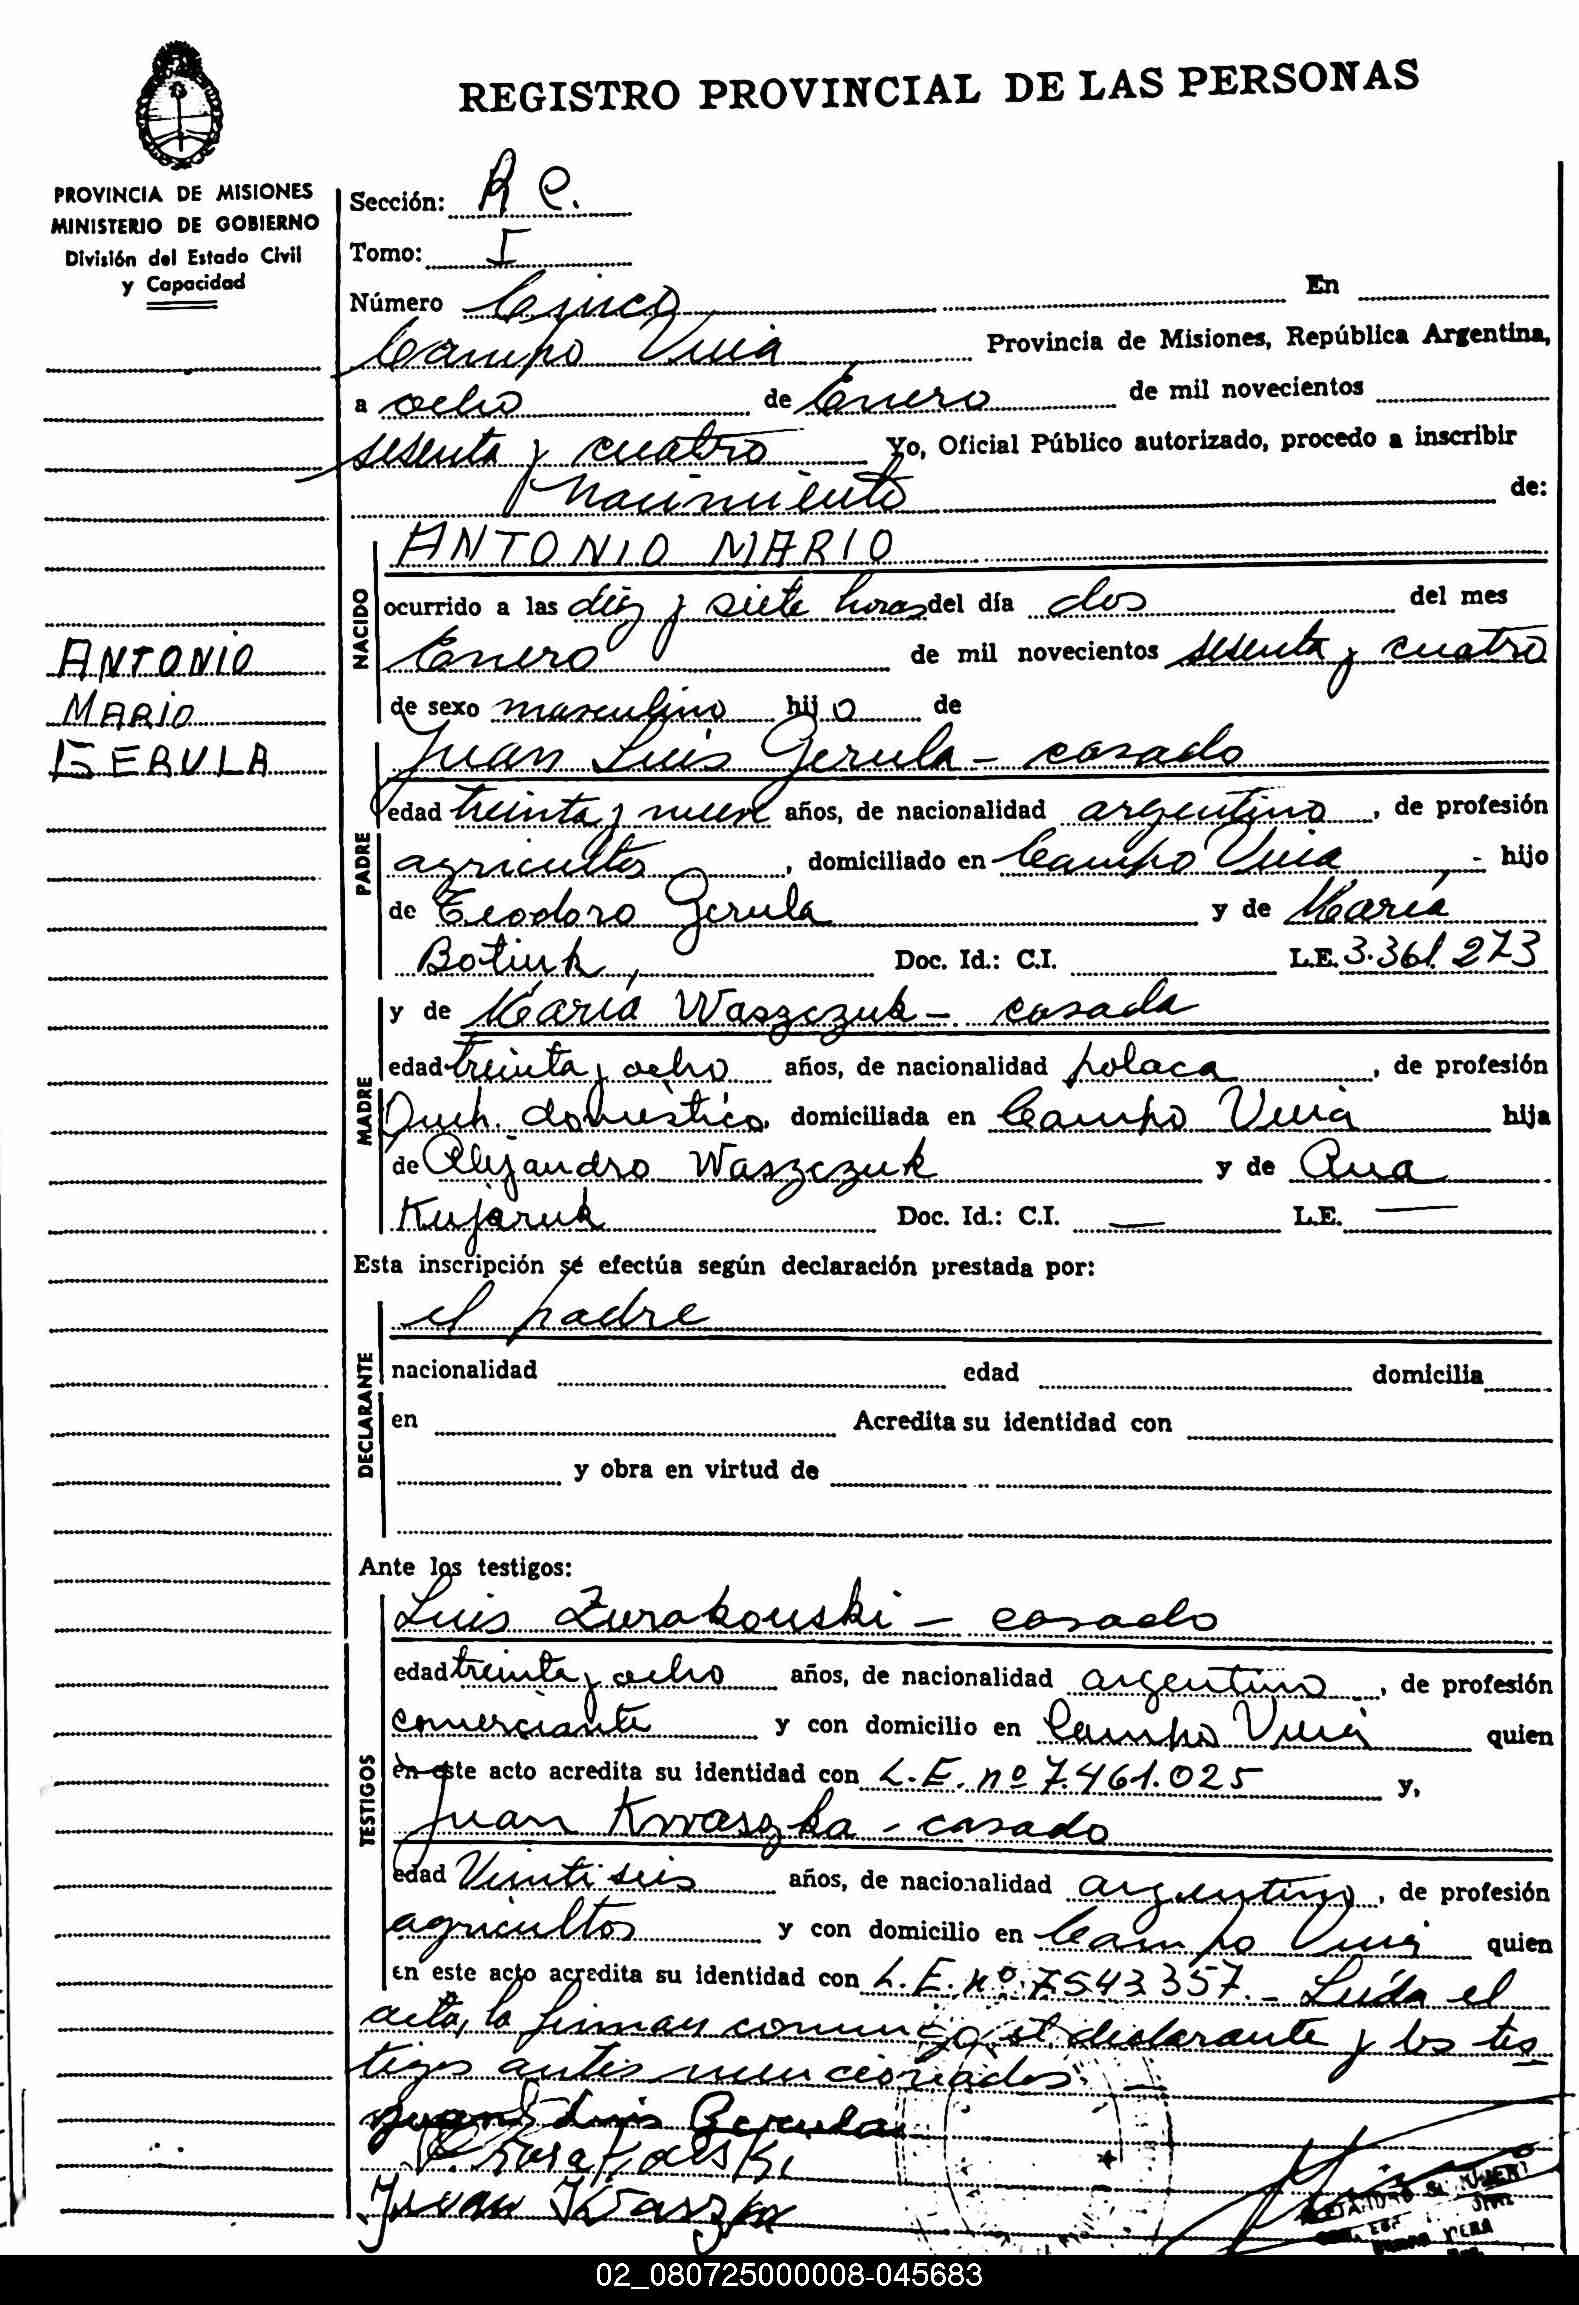 REGISTRO PROVINCIAL DE LAS PERSONAS
PROVINCIA DE MISIONES
MINISTERIO DE GOBIERNO
División del Estado Civil
y Capacidad
ANTONIO
MARIO
GERULA
Sección: R C.
Tomo: I
Número Cinco En
Campo Viera Provincia de Misiones, República Argentina,
a ocho de Enero de mil novecientos
sesenta y cuatro Yo, Oficial Público autorizado, procedo a inscribir
Nacimiento de:
NACIDO
ANTONIO MARIO
ocurrido a las diez y siete horas del día dos del mes
Enero de mil novecientos sesenta y cuatro
de sexo masculino hijo de
PADRE
Juan Luis Gerula - casado
edad treinta y nueve años, de nacionalidad argentino, de profesión
agricultor, domiciliado en Campo Viera - hijo
de Teodoro Gerula y de María
Botiuk, Doc. Id.: C.I. L.E. 3.361.273
MADRE
y de María Waszczuk - casada
edad treinta y ocho años, de nacionalidad polaca, de profesión
Queh. doméstico, domiciliada en Campo Viera hija
de Alejandro Waszczuk y de Ana
Kujaruk Doc. Id.: C.I. — L.E. —
Esta inscripción se efectúa según declaración prestada por:
DECLARANTE
el padre
nacionalidad edad domicilia
en Acredita su identidad con
y obra en virtud de
Ante los testigos:
TESTIGOS
Luis Zurakouski - casado
edad treinta y ocho años, de nacionalidad argentino, de profesión
comerciante y con domicilio en Campo Viera quien
en este acto acredita su identidad con L.E. nº 7.461.025 y,
Juan Kwaszka - casado
edad Veintiseis años, de nacionalidad argentino, de profesión
agricultor y con domicilio en Campo Viera quien
en este acto acredita su identidad con L.E. nº 7.543.357. - Leída el
acta, la firman conmigo, el declarante y los tes
tigos antes mencionados. —
Juan Luis Gerula
Juan
02_080725000008-045683